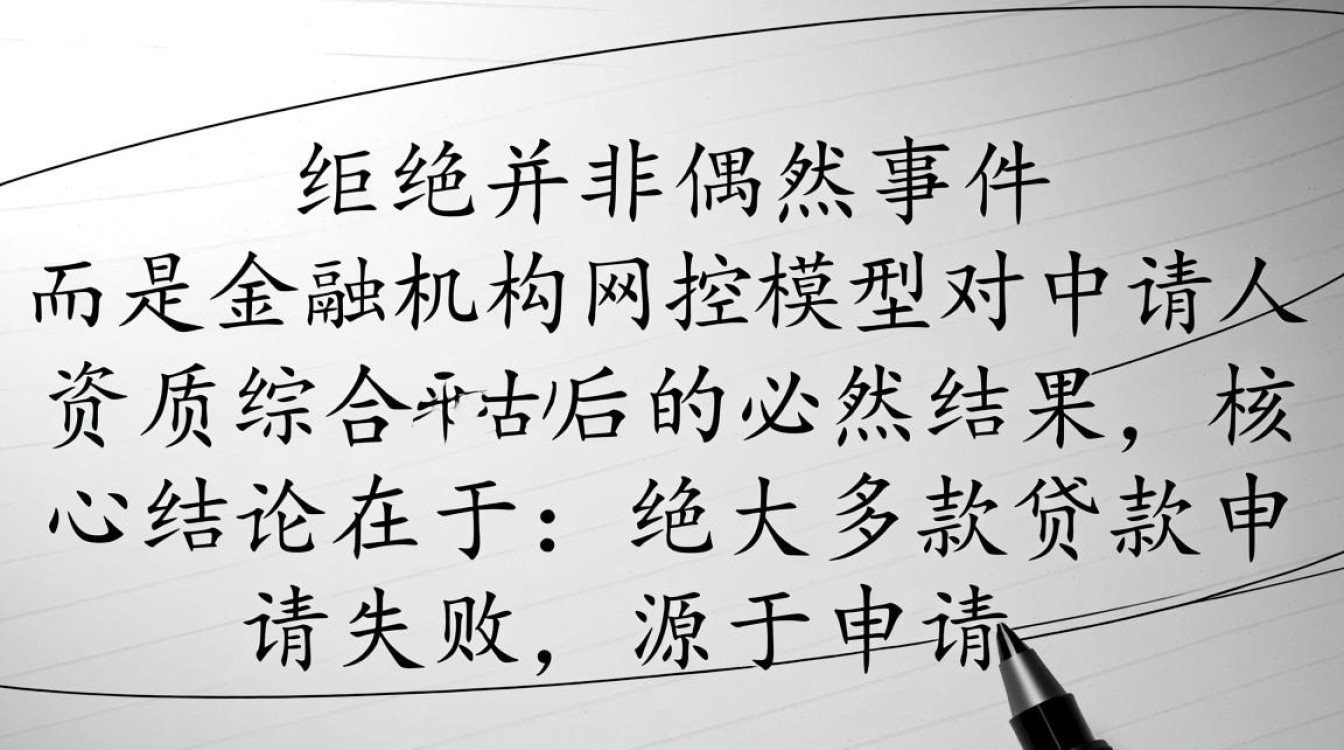 绝并非偶然事件
而是金融机构网控模型对中请人
资质综合后的必然结果，核
心结论在于：绝大多款贷款申
请失败，源于申请